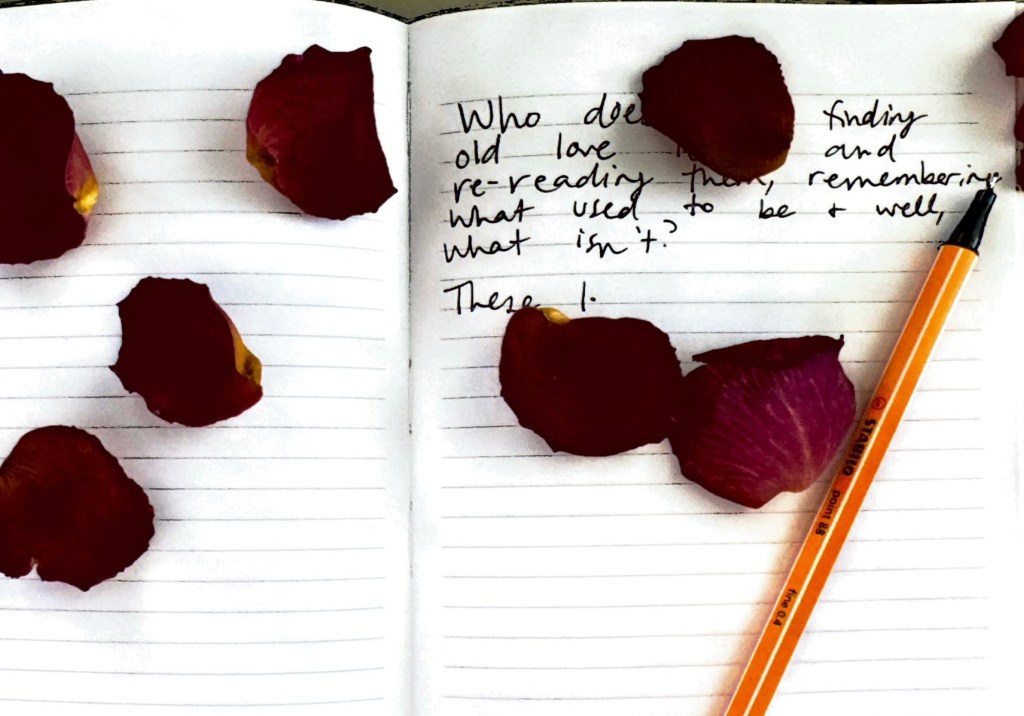 Who doe finding
old love and
re-reading them, remembering
what used to be + well,
what isn't?
These
STABILO point 88 fine 0.4